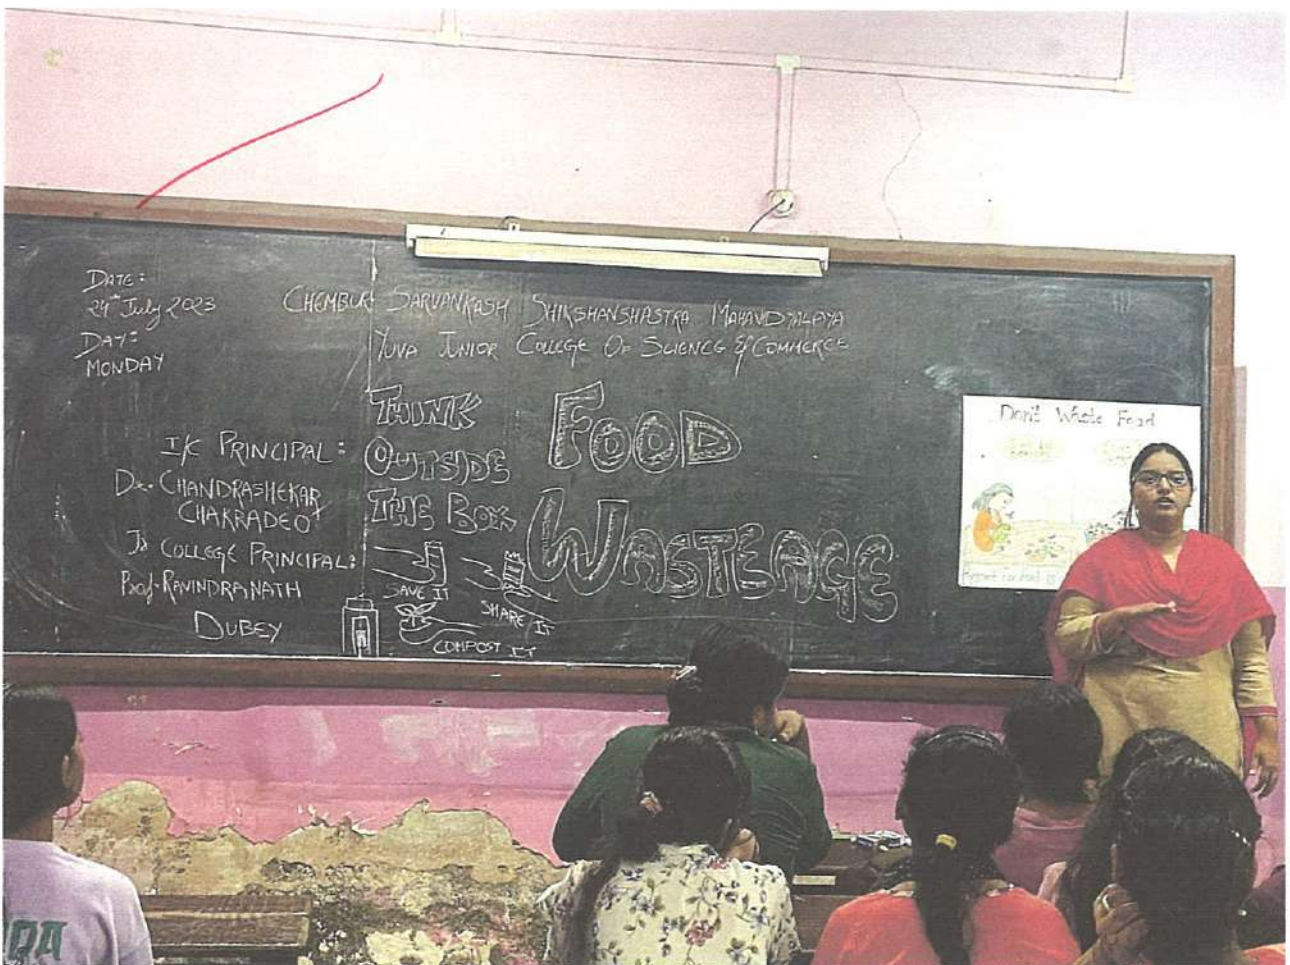 DATE:
24th July 2023
DAY:
MONDAY
CHEMBUR SARVANKASH SHIKSHANSHASTRA MAHAVIDYALAYA
YUVA JUNIOR COLLEGE OF SCIENCE & COMMERCE
I/C PRINCIPAL:
Dr. CHANDRASHEKAR
CHAKRADEO
Jr COLLEGE PRINCIPAL:
Prof. RAVINDRANATH
DUBEY
THINK
OUTSIDE
THE BOX
SAVE IT
SHARE IT
COMPOST IT
FOOD
WASTEAGE
Don't Waste Food